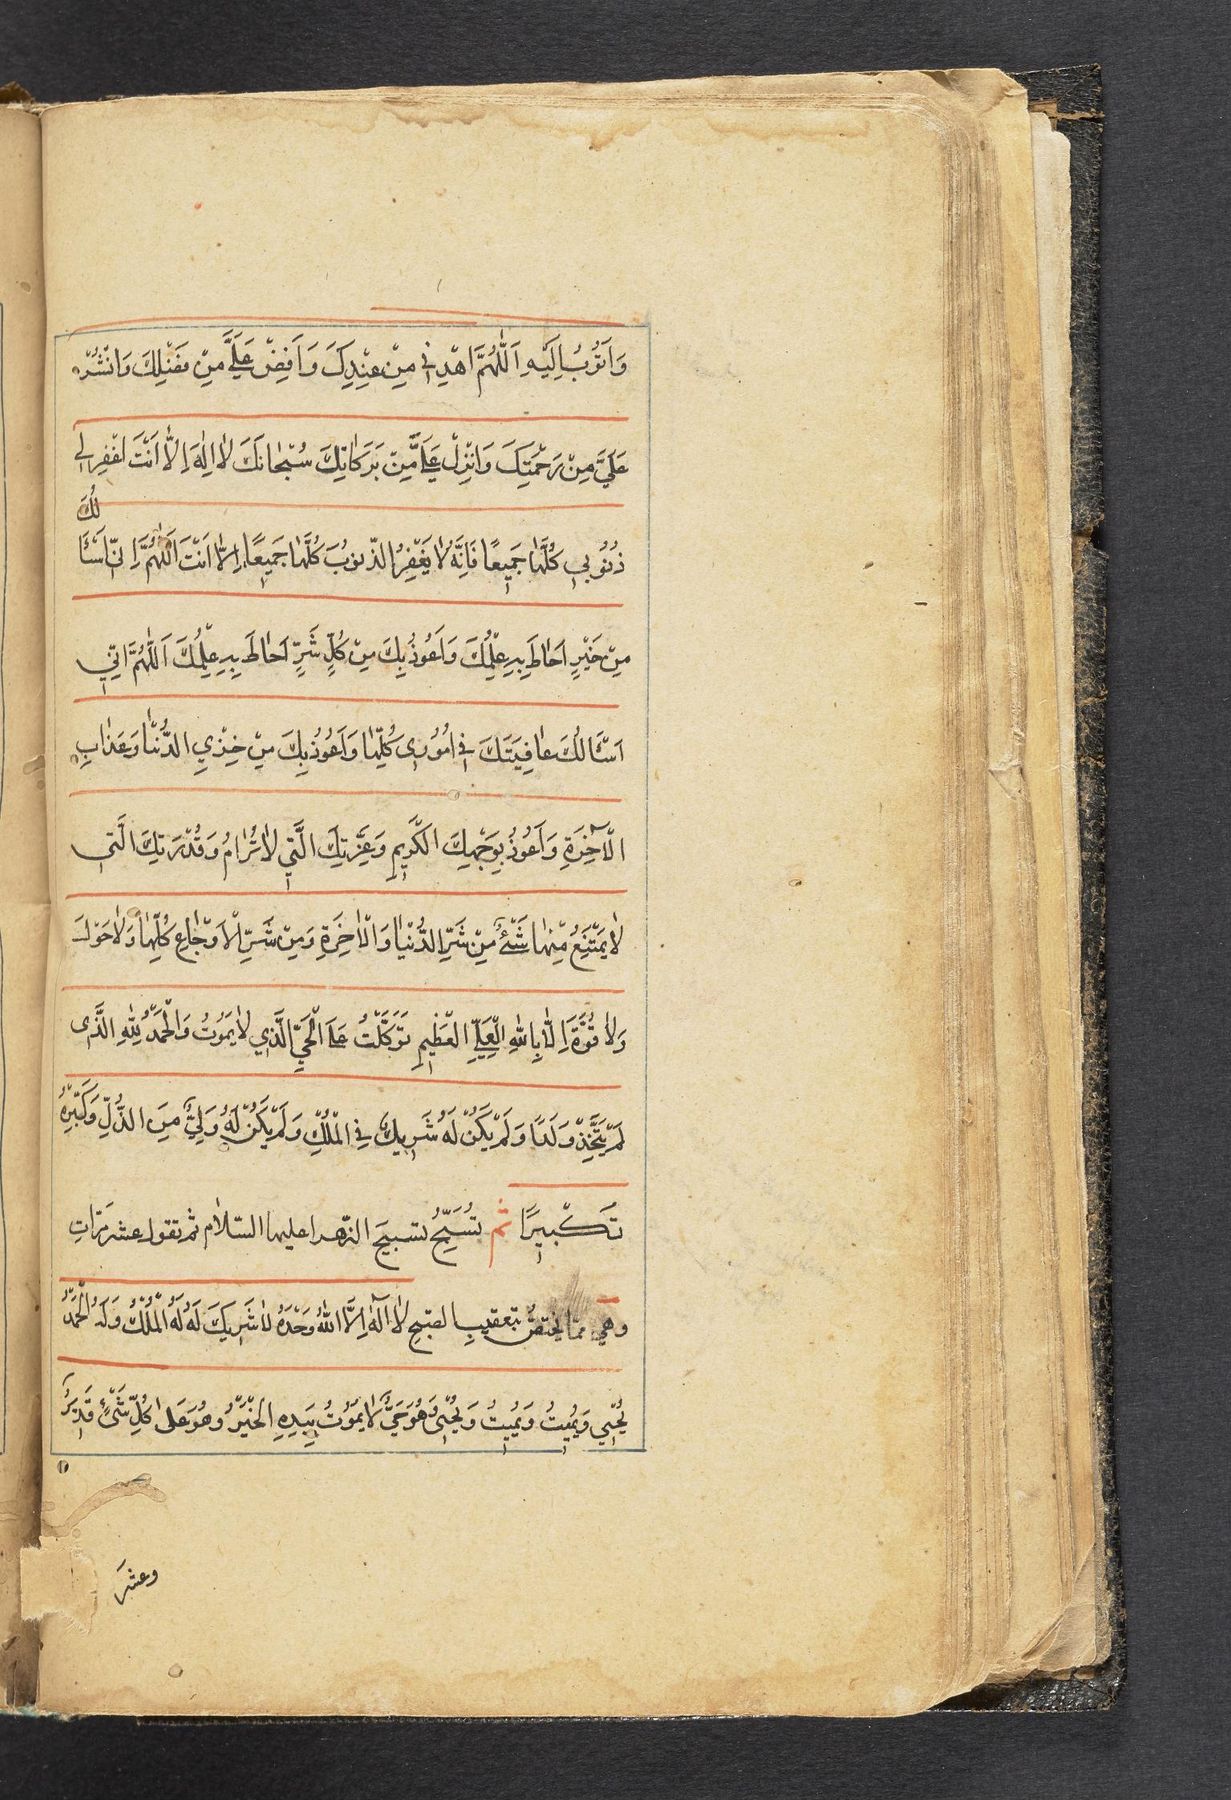 وَاَتُوبُ اِلَيْهِ اَللّٰهُمَّ اهْدِنِي مِنْ عِنْدِكَ وَاَفِضْ عَلَيَّ مِنْ فَضْلِكَ وَانْشُرْ
عَلَيَّ مِنْ رَحْمَتِكَ وَاَنْزِلْ عَلَيَّ مِنْ بَرَكَاتِكَ سُبْحَانَكَ لَا اِلٰهَ اِلَّا اَنْتَ اغْفِرْ لِي
ذُنُوبِي كُلَّهَا جَمِيعًا فَاِنَّهُ لَا يَغْفِرُ الذّنُوبَ كُلَّهَا جَمِيعًا اِلَّا اَنْتَ اَللّٰهُمَّ اِنّي اَسْئَالُكَ
مِنْ خَيْرٍ اَحَاطَ بِهِ عِلْمُكَ وَاَعُوذُ بِكَ مِنْ كُلِّ شَرٍّ اَحَاطَ بِهِ عِلْمُكَ اَللّٰهُمَّ اِنّي
اَسْئَالُكَ عَافِيَتَكَ فِي اُمُورِي كُلِّهَا وَاَعُوذُ بِكَ مِنْ خِزْيِ الدُّنْيَا وَعَذَابِ
الْآخِرَةِ وَاَعُوذُ بِوَجْهِكَ الْكَرِيمِ وَعِزَّتِكَ الَّتِي لَا تُرَامُ وَقُدْرَتِكَ الَّتِي
لَا يَمْتَنِعُ مِنْهَا شَيْءٌ مِنْ شَرِّ الدُّنْيَا وَالْاٰخِرَةِ وَمِنْ شَرِّ الْاَوْجَاعِ كُلِّهَا وَلَا حَوْلَ
وَلَا قُوَّةَ اِلَّا بِاللهِ الْعَلِيِّ الْعَظِيمِ تَوَكَّلْتُ عَلَى الْحَيِّ الَّذِي لَا يَمُوتُ وَالْحَمْدُ لِلّٰهِ الَّذِي
لَمْ يَتَّخِذْ وَلَدًا وَلَمْ يَكُنْ لَهُ شَرِيكٌ فِي الْمُلْكِ وَلَمْ يَكُنْ لَهُ وَلِيٌّ مِنَ الذُّلِّ وَكَبِّرْهُ
تَكْبِيرًا ثم تُسَبِّحُ تسبيحَ الزّهرا عليها السّلام ثم تقول عشر مَرّاتٍ
وهي ممّا يختصّ بتعقيبِ الصّبحِ لَا اِلٰهَ اِلَّا اللهُ وَحْدَهُ لَا شَرِيكَ لَهُ لَهُ الْمُلْكُ وَلَهُ الْحَمْدُ
يُحْيِي وَيُمِيتُ وَيُمِيتُ وَيُحْيِي وَهُوَ حَيٌّ لَا يَمُوتُ بِيَدِهِ الْخَيْرُ وَهُوَ عَلَى كُلِّ شَيْءٍ قَدِيرٌ
وعشرَ